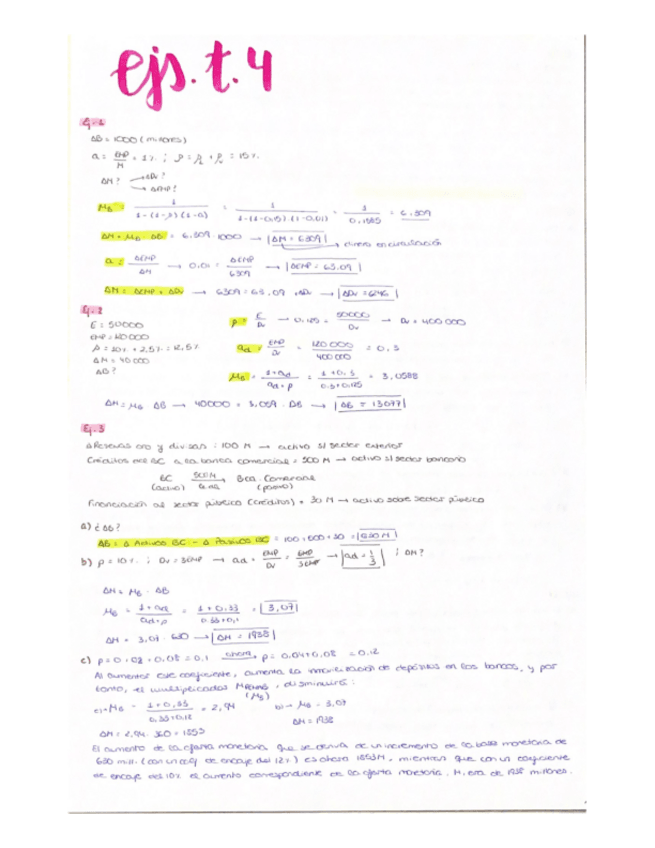 ejs. t. 4
Ej. 1
ΔB = 1000 (millones)
a = EMP/M = 1% ; ρ = ρL + ρe = 15%
ΔM? → ΔDv?
→ ΔEMP?
MB = 1/(1-(1-ρ)(1-a)) = 1/(1-(1-0,15)(1-0,01)) = 1/0,1585 = 6,309
ΔM = MB · ΔB = 6,309 · 1000 → |ΔM = 6309| → dinero en circulación
a = ΔEMP/ΔM → 0,01 = ΔEMP/6309 → |ΔEMP = 63,09|
ΔM = ΔEMP + ΔDv → 6309 = 63,09 + ΔDv → |ΔDv = 6246|
Ej. 2
E = 50000
ρ = E/Dv → 0,125 = 50000/Dv → Dv = 400 000
ρ = 10% + 2,5% = 12,5%
ΔM = 40000
ΔB?
ad = EMP/Dv = 120 000/400 000 = 0,3
MB = 1+ad/ad+ρ = 1+0,3/0,3+0,125 = 3,0588
ΔM = MB ΔB → 40000 = 3,059 · ΔB → |ΔB = 13077|
Ej. 3
ΔReservas oro y divisas : 100 M → activo s/ sector exterior
Créditos del BC a la banca comercial = 500 M → activo s/ sector bancario
BC 500M Bca. Comercial
(activo) (pasivo)
Financiación al sector público (créditos) = 30 M → activo sobre sector público
a) ¿ΔB?
ΔB = Δ Activos BC - Δ Pasivos BC = 100+500+30 = |630 M|
b) ρ = 10% ; Dv = 3EMP → ad = EMP/Dv = EMP/3EMP → |ad = 1/3| ; ΔM?
ΔM = MB · ΔB
MB = 1+ad/ad+ρ = 1+0,33/0,33+0,1 = |3,07|
ΔM = 3,07 · 630 → |ΔM = 1938|
c) ρ = 0,02 + 0,08 = 0,1 ahora → ρ = 0,04+0,08 = 0,12
Al aumentar este coeficiente, aumenta la inmovilización de depósitos en los bancos, y por
tanto, el multiplicador, disminuirá:
(MB)
c) → MB = 1+0,33/0,33+0,12 = 2,94 b) → MB = 3,07
ΔM = 1938
El aumento de la oferta monetaria que se deriva de un incremento de la base monetaria de
630 mill. (con un coef. de encaje del 12%) es ahora, mientras que con un coeficiente
de encaje del 10% el aumento correspondiente de la oferta monetaria, M, era de 1938 millones.